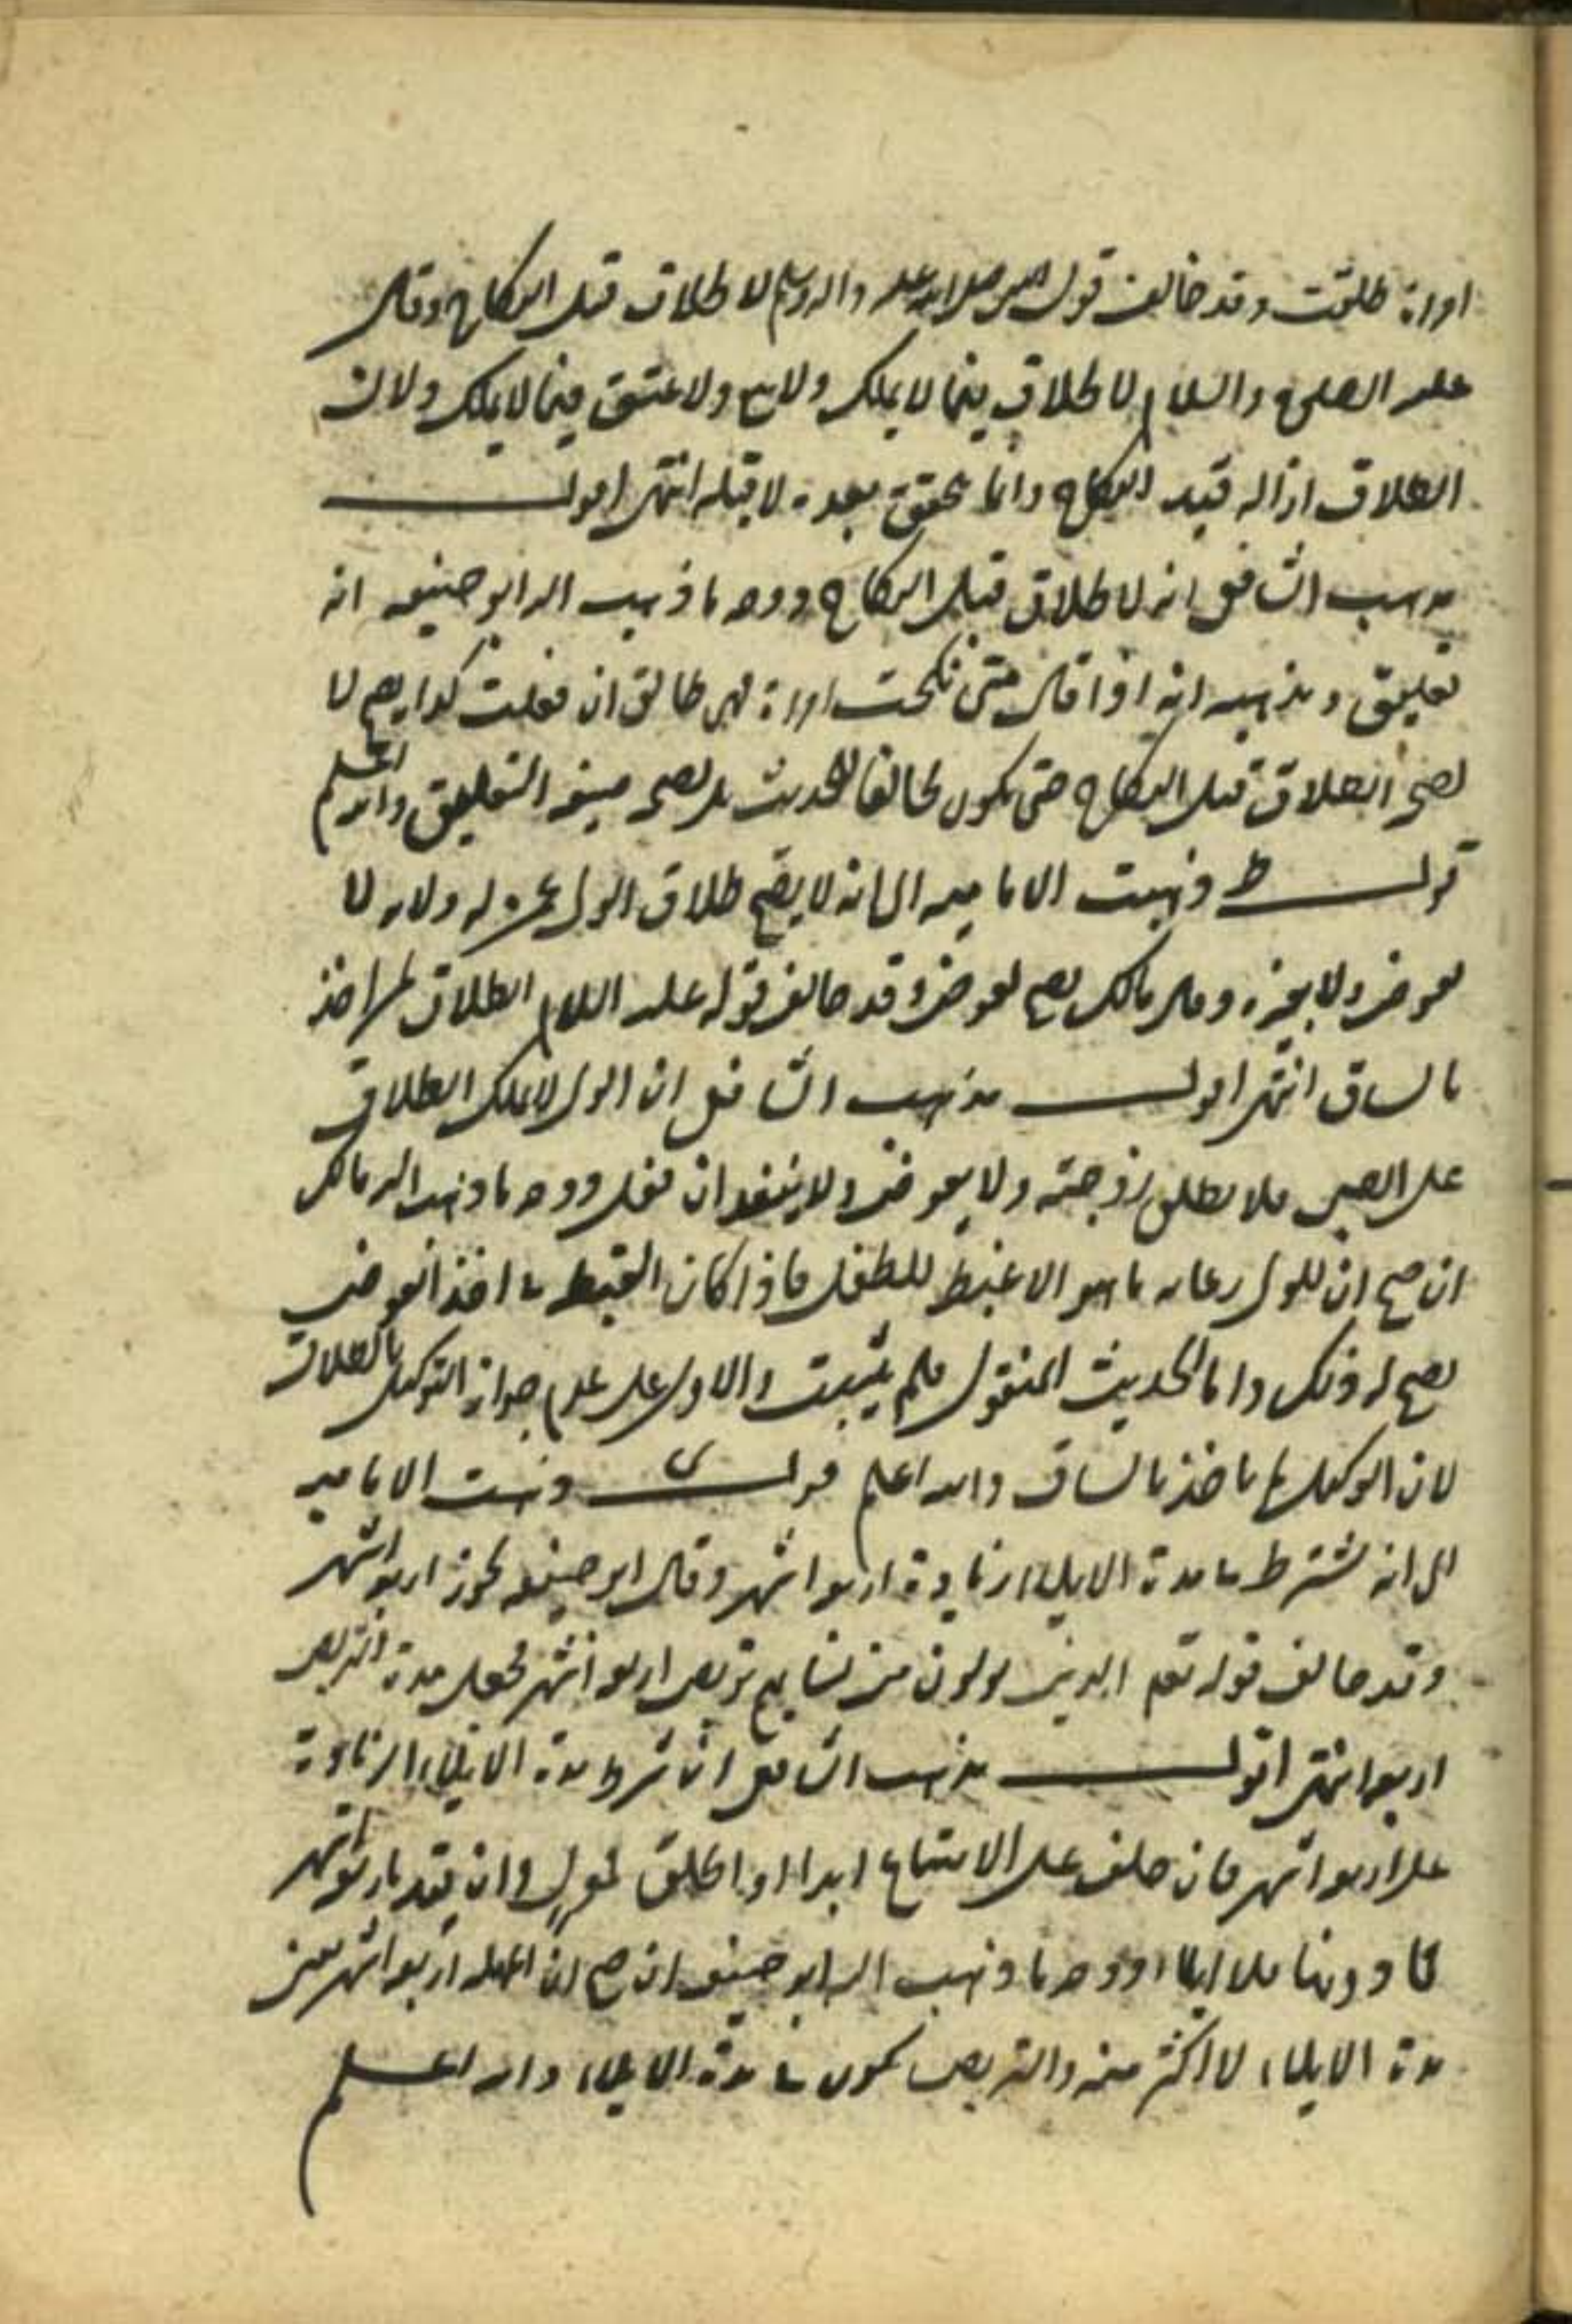 امراة طلقت وقد خالف قول النبي صلى الله عليه واله وسلم لا طلاق قبل النكاح وقال
عليه الصلوة والسلام لا طلاق فيما لا يملك ولا بيع ولا عتق فيما لا يملك ولان
الطلاق ازالة قيد النكاح وانما يتحقق بعده لا قبله انتهى اقول
مذهب الشافعي انه لا طلاق قبل النكاح ووجه ما ذهب اليه ابو حنيفه انه
تعليق ومذهبه انه اذا قال متى نكحت امراة فهي طالق ان فعلت كذا يصح لا
يصح الطلاق قبل النكاح حتى يكون مخالفا للحديث بل يصح صيغة التعليق والله اعلم
قوله ط وذهبت الاماميه الى انه لا يصح طلاق الولي عمن له ولايه لا
بعوض ولا بغيره وقال مالك يصح بعوض وقد خالف قوله عليه السلام الطلاق لمن اخذ
بالساق انتهى اقول مذهب الشافعي ان الولي لا يملك الطلاق
على الصبي فلا يطلق زوجته ولا بعوض ولا ينفذ ان فعل ووجه ما ذهب اليه مالك
ان صح ان للولي رعايه ما هو الاغبط للطفل فاذا كان الغبطه في اخذ العوض
يصح له ذلك واما الحديث المنقول فلم يثبت والا دل على عدم جواز التوكيل بالطلاق
لان الوكيل ما اخذ بالساق والله اعلم قوله ى وذهبت الاماميه
الى انه يشترط في مدة الايلاء زيادة اربعة اشهر وقال ابو حنيفه يجوز اربعة اشهر
وقد خالف قوله تعم الذين يولون من نسايهم تربص اربعة اشهر فجعل مدة التربص
اربعة انتهى اقول مذهب الشافعي ان شرط مدة الايلاء الزيادة
على اربعة اشهر فان حلف على الامتناع ابدا او اطلق فمول وان قيد باربعة اشهر
فما دونها فلا ايلاء ووجه ما ذهب اليه ابو حنيفه ان صح ان المهلة اربعة اشهر
مدة الايلاء لا اكثر منه والتربص يكون في مدة الايلاء والله اعلم